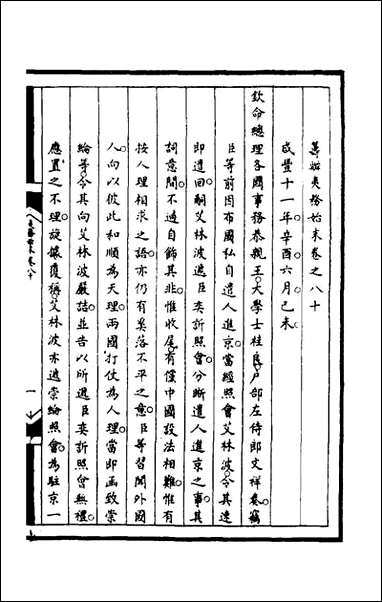 籌辦夷務始末卷之八十
咸豐十一年辛酉六月己未
欽命總理各國事務恭親王大學士桂良戶部左侍郎文祥奏竊
臣等前因布國私自遣人進京當經照會艾林波令其速
即遣回嗣艾林波遞臣奕訢照會分晰遣人進京之事其
詞意間不過自飾其非惟收尾有僅中國設法相難惟有
按人理相求之語亦仍有奚落不平之意臣等習聞外國
人向以彼此和順為天理兩國打仗為人理當即函致崇
綸等令其向艾林波嚴詰並告以所遞臣奕訢照會無禮
應置之不理旋據覆稱艾林波亦遞崇綸照會為駐京一